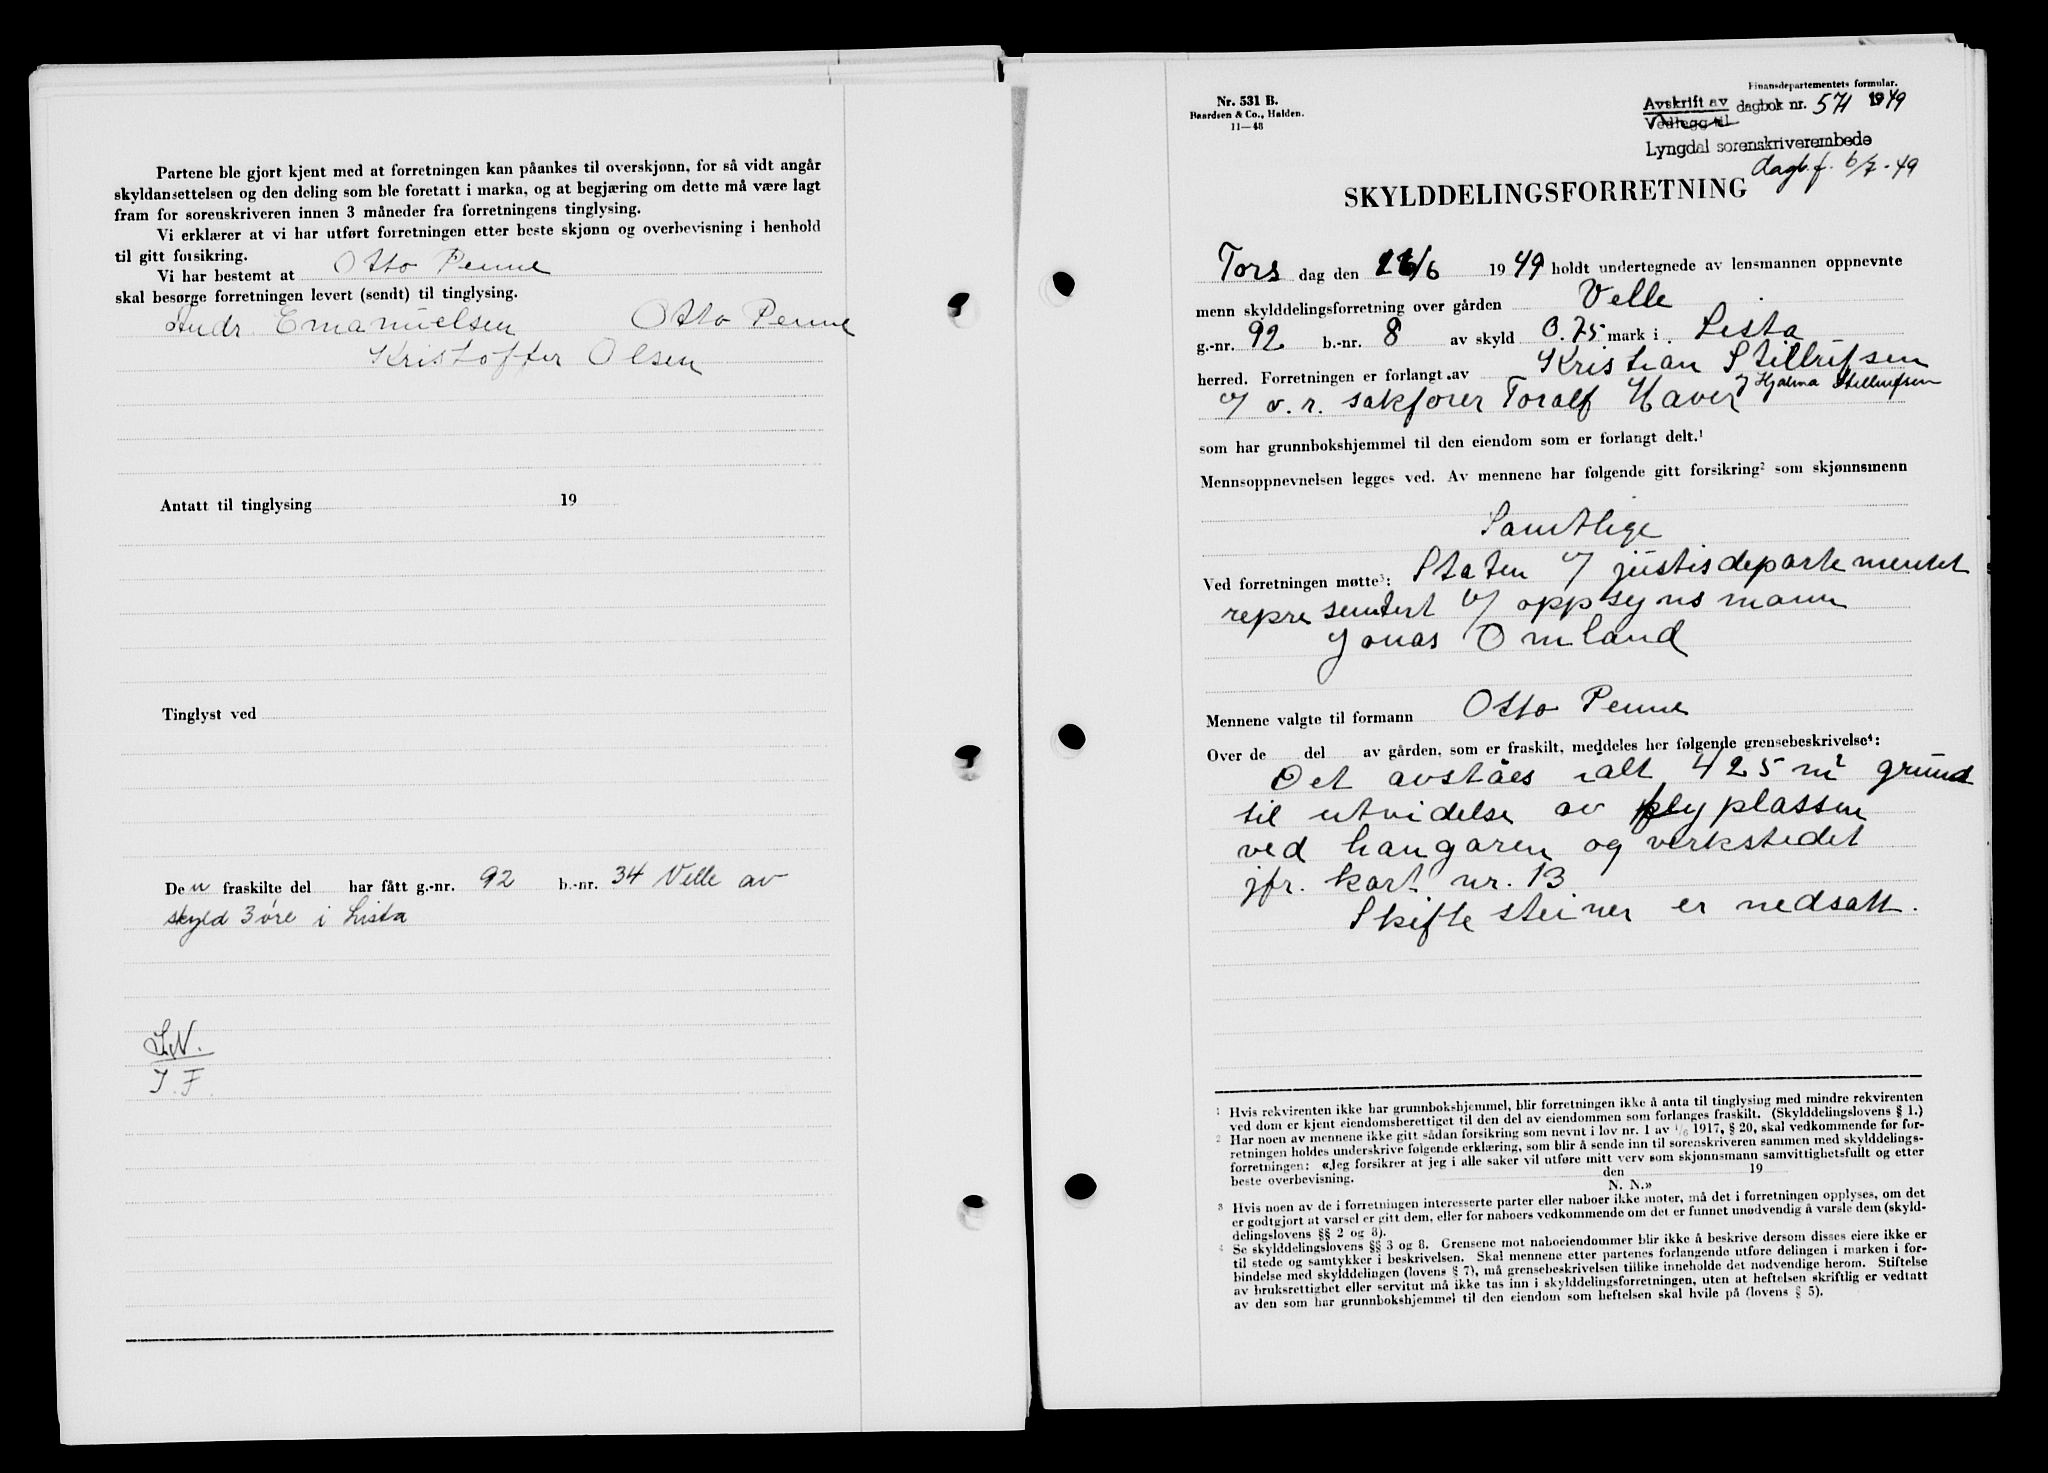 Partene ble gjort kjent med at forretningen kan påankes til overskjønn, for så vidt angår
skyldansettelsen og den deling som ble foretatt i marka, og at begjæring om dette må være lagt
fram for sorenskriveren innen 3 måneder fra forretningens tinglysing.
Vi erklærer at vi har utført forretningen etter beste skjønn og overbevisning i henhold
til gitt forsikring.
Vi har bestemt at Otto Penne
skal besørge forretningen levert (sendt) til tinglysing.
Andr. Emanuelsen Otto Penne
Kristoffer Olsen
Antatt til tinglysing 19
Tinglyst ved
Den fraskilte del har fått g.-nr. 92 b.-nr. 34 Velle av
skyld 3 øre i Lista
L.N.
J.F.
Nr. 531 B.
Baardsen & Co., Halden.
11—48
Finansdepartementets formular.
Avskrift av dagbok nr. 571 1949
Vedlegg til
Lyngdal sorenskriverembede
dagb.f. 6/7-49
SKYLDDELINGSFORRETNING
Tors dag den /6 1949 holdt undertegnede av lensmannen oppnevnte
menn skylddelingsforretning over gården Velle
g.-nr. 92 b.-nr. 8 av skyld 0.75 mark i Lista
herred. Forretningen er forlangt av Kristian Stillufsen
v/ o.r. sakfører Toralf Haver v/ Hjalma Stellufsen
som har grunnbokshjemmel til den eiendom som er forlangt delt.¹
Mennsoppnevnelsen legges ved. Av mennene har følgende gitt forsikring² som skjønnsmenn
Samtlige
Ved forretningen møtte³: Staten v/ justisdepartementet
representert v/ oppsynsmann
Jonas Omland
Mennene valgte til formann Otto Penne
Over de del av gården, som er fraskilt, meddeles her følgende grensebeskrivelse⁴:
Det avståes ialt 425 m² grund
til utvidelse av flyplassen
ved hangaren og verkstedet
jfr. kart nr. 13
Skiftesteiner er nedsatt.
¹ Hvis rekvirenten ikke har grunnbokshjemmel, blir forretningen ikke å anta til tinglysing med mindre rekvirenten
ved dom er kjent eiendomsberettiget til den del av eiendommen som forlanges fraskilt. (Skylddelingslovens § 1.)
² Har noen av mennene ikke gitt sådan forsikring som nevnt i lov nr. 1 av ¹/₆ 1917, § 20, skal vedkommende før for-
retningen holdes underskrive følgende erklæring, som blir å sende inn til sorenskriveren sammen med skylddelings-
forretningen: «Jeg forsikrer at jeg i alle saker vil utføre mitt verv som skjønnsmann samvittighetsfullt og etter
beste overbevisning. den 19
N. N.»
³ Hvis noen av de i forretningen interesserte parter eller naboer ikke møter, må det i forretningen opplyses, om det
er godtgjort at varsel er gitt dem, eller for naboers vedkommende om det er funnet unødvendig å varsle dem (skyld-
delingslovens §§ 2 og 3).
⁴ Se skylddelingslovens §§ 3 og 8. Grensene mot naboeiendommer blir ikke å beskrive dersom disses eiere ikke er
til stede og samtykker i beskrivelsen. Skal mennene etter partenes forlangende utføre delingen i marken i for-
bindelse med skylddelingen (lovens § 7), må grensebeskrivelsen tillike inneholde det nødvendige herom. Stiftelse
av bruksrettighet eller servitut må ikke tas inn i skylddelingsforretningen, uten at heftelsen skriftlig er vedtatt
av den som har grunnbokshjemmel til den eiendom som heftelsen skal hvile på (lovens § 5).